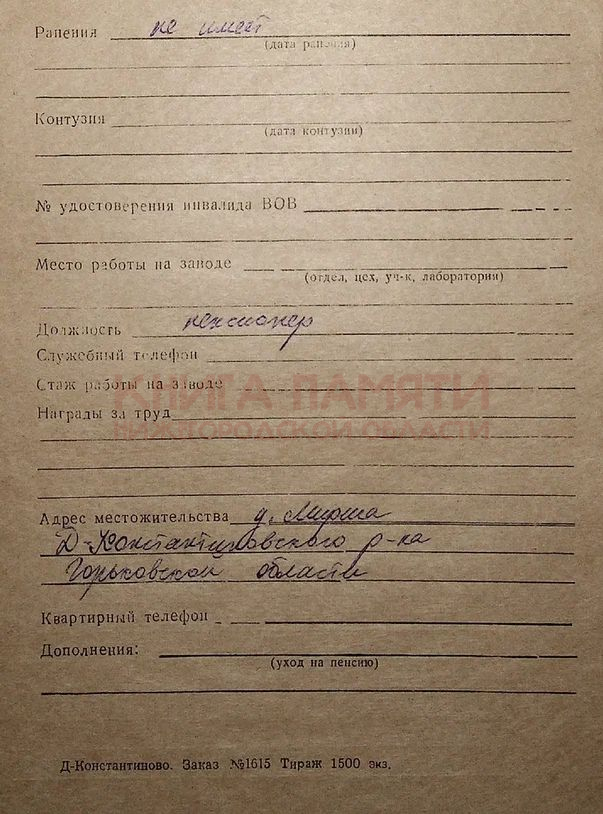 Ранения не имеет
(дата ранения)
Контузия
(дата контузии)
№ удостоверения инвалида ВОВ
Место работы на заводе
(отдел, цех, уч-к, лаборатория)
Должность пенсионер
Служебный телефон
Стаж работы на заводе
КНИГА ПАМЯТИ
Награды за труд
НИЖЕГОРОДСКОЙ ОБЛАСТИ
Адрес местожительства д. Мирша
Д-Константиновского р-на
Горьковской области
Квартирный телефон
Дополнения:
(уход на пенсию)
Д-Константиново. Заказ №1615 Тираж 1500 экз.